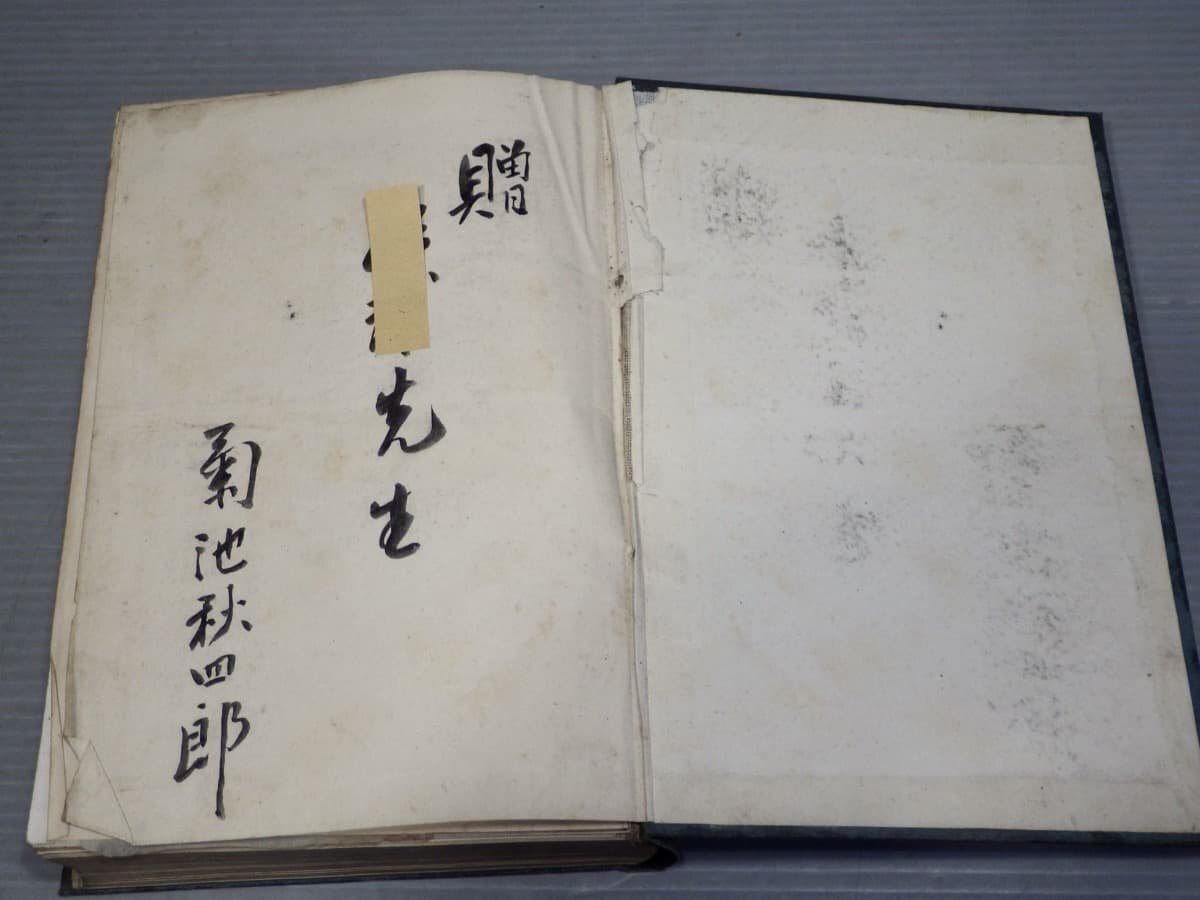 贈
先生
菊池秋四郎